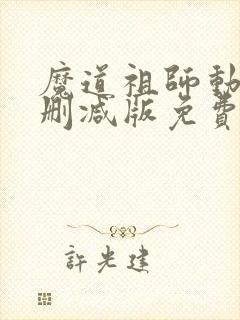 魔道祖師動
刪減版免費
許光建